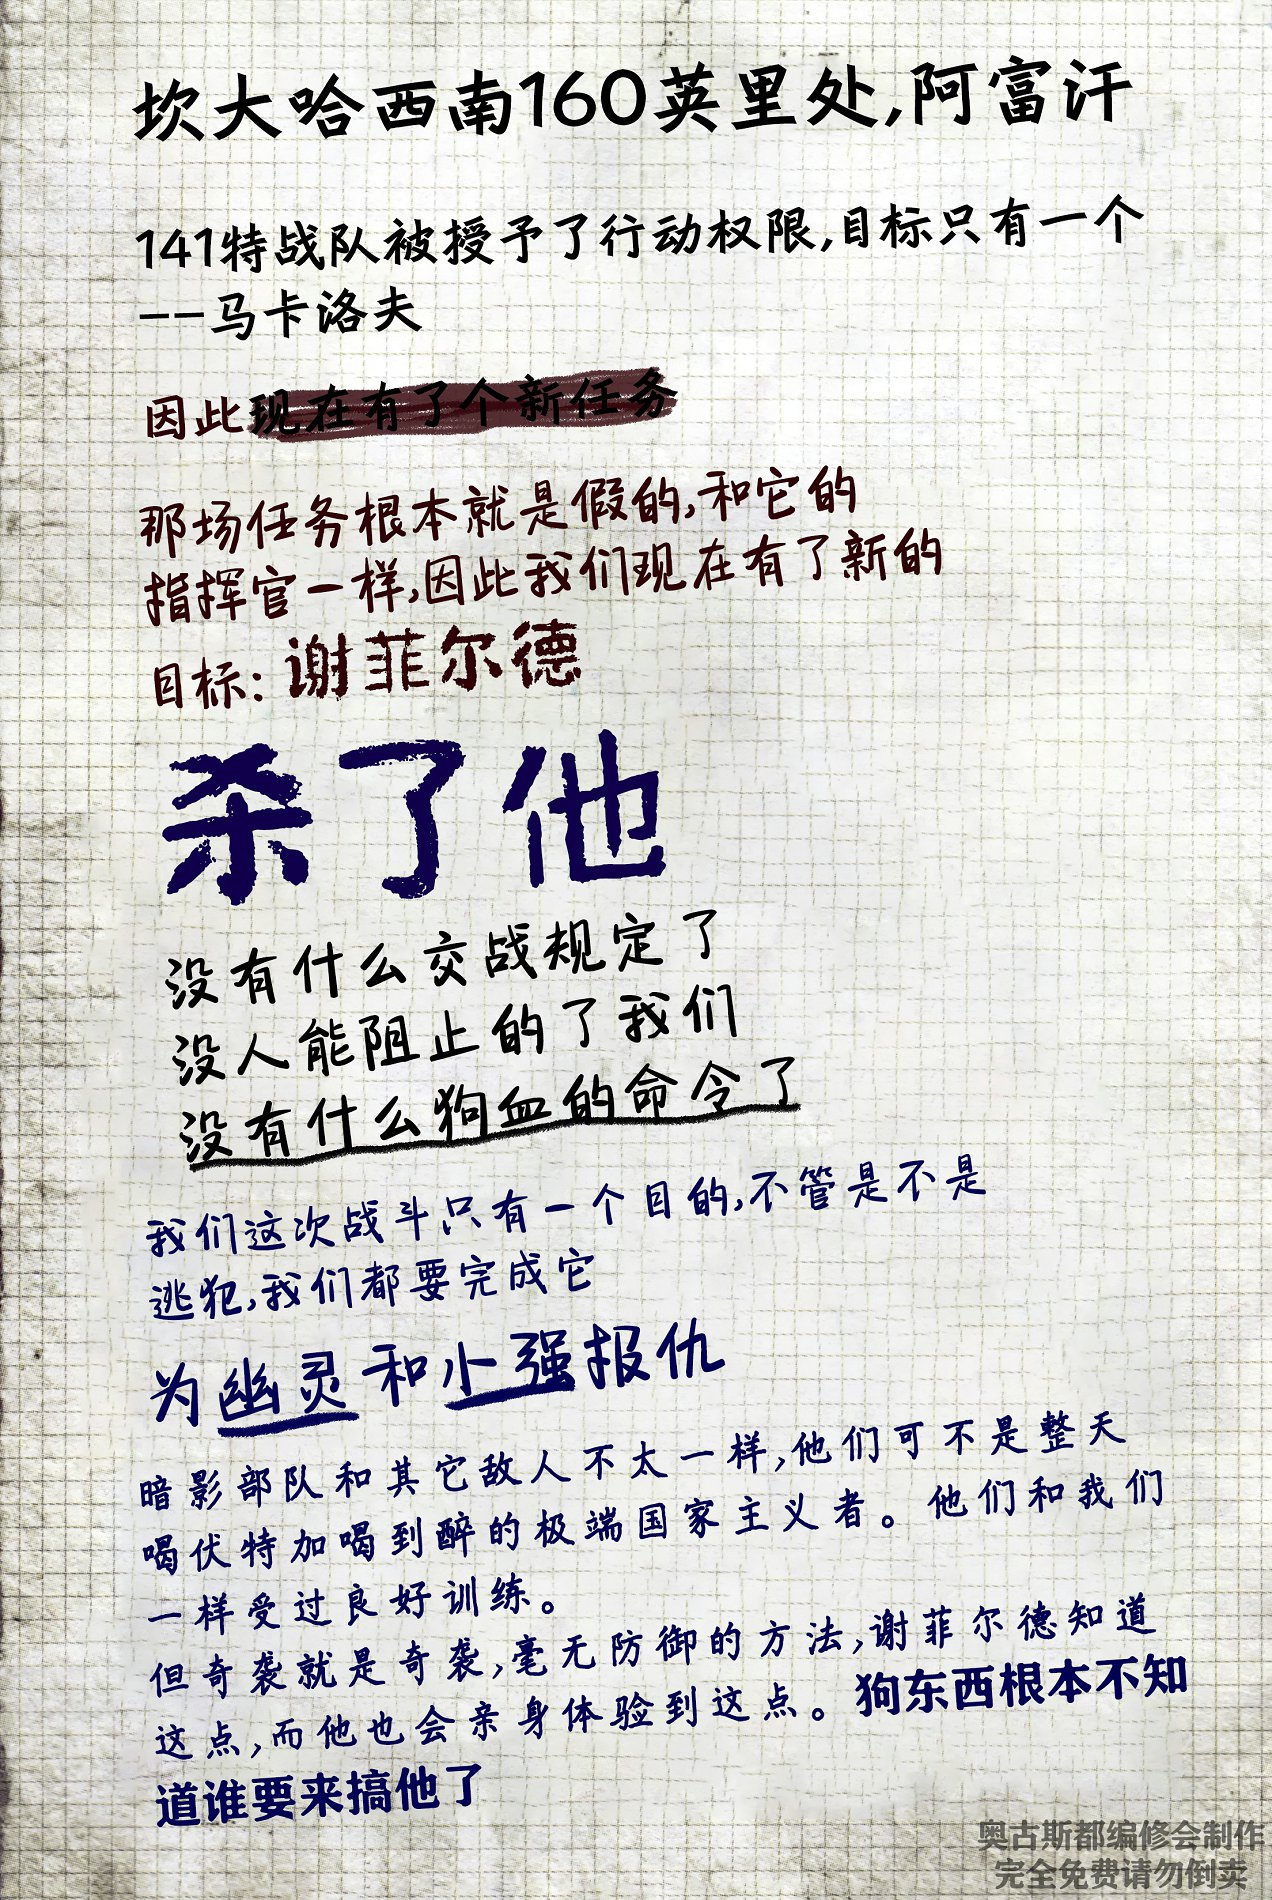 坎大哈西南160英里处,阿富汗
141特战队被授予了行动权限,目标只有一个
--马卡洛夫
因此现在有了个新任务
那场任务根本就是假的,和它的
指挥官一样,因此我们现在有了新的
目标:谢菲尔德
杀了他
没有什么交战规定了
没人能阻止的了我们
没有什么狗血的命令了
我们这次战斗只有一个目的,不管是不是
逃犯,我们都要完成它
为幽灵和小强报仇
暗影部队和其它敌人不太一样,他们可不是整天
喝伏特加喝到醉的极端国家主义者。他们和我们
一样受过良好训练。
但奇袭就是奇袭,毫无防御的方法,谢菲尔德知道
这点,而他也会亲身体验到这点。狗东西根本不知
道谁要来搞他了
奥古斯都编修会制作
完全免费请勿倒卖